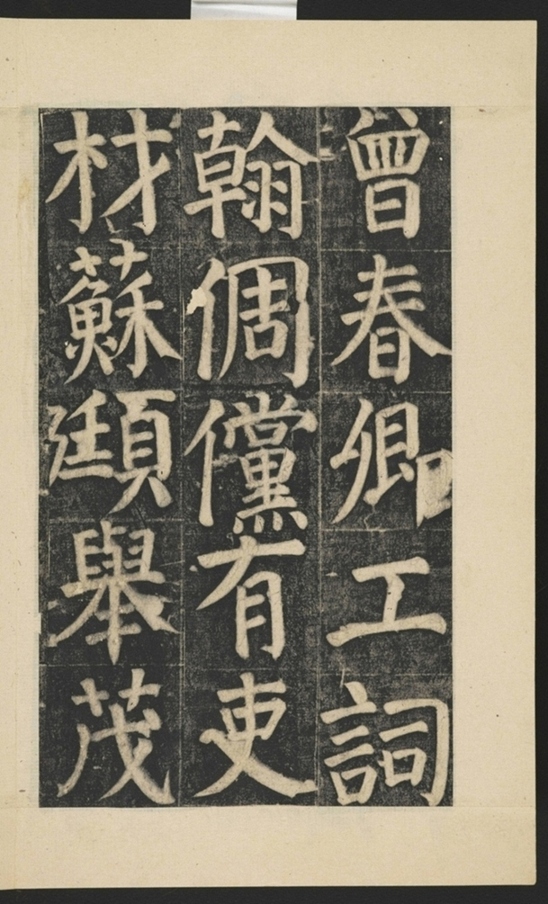 曾春卿工詞
翰倜儻有吏
材蘇頲舉茂